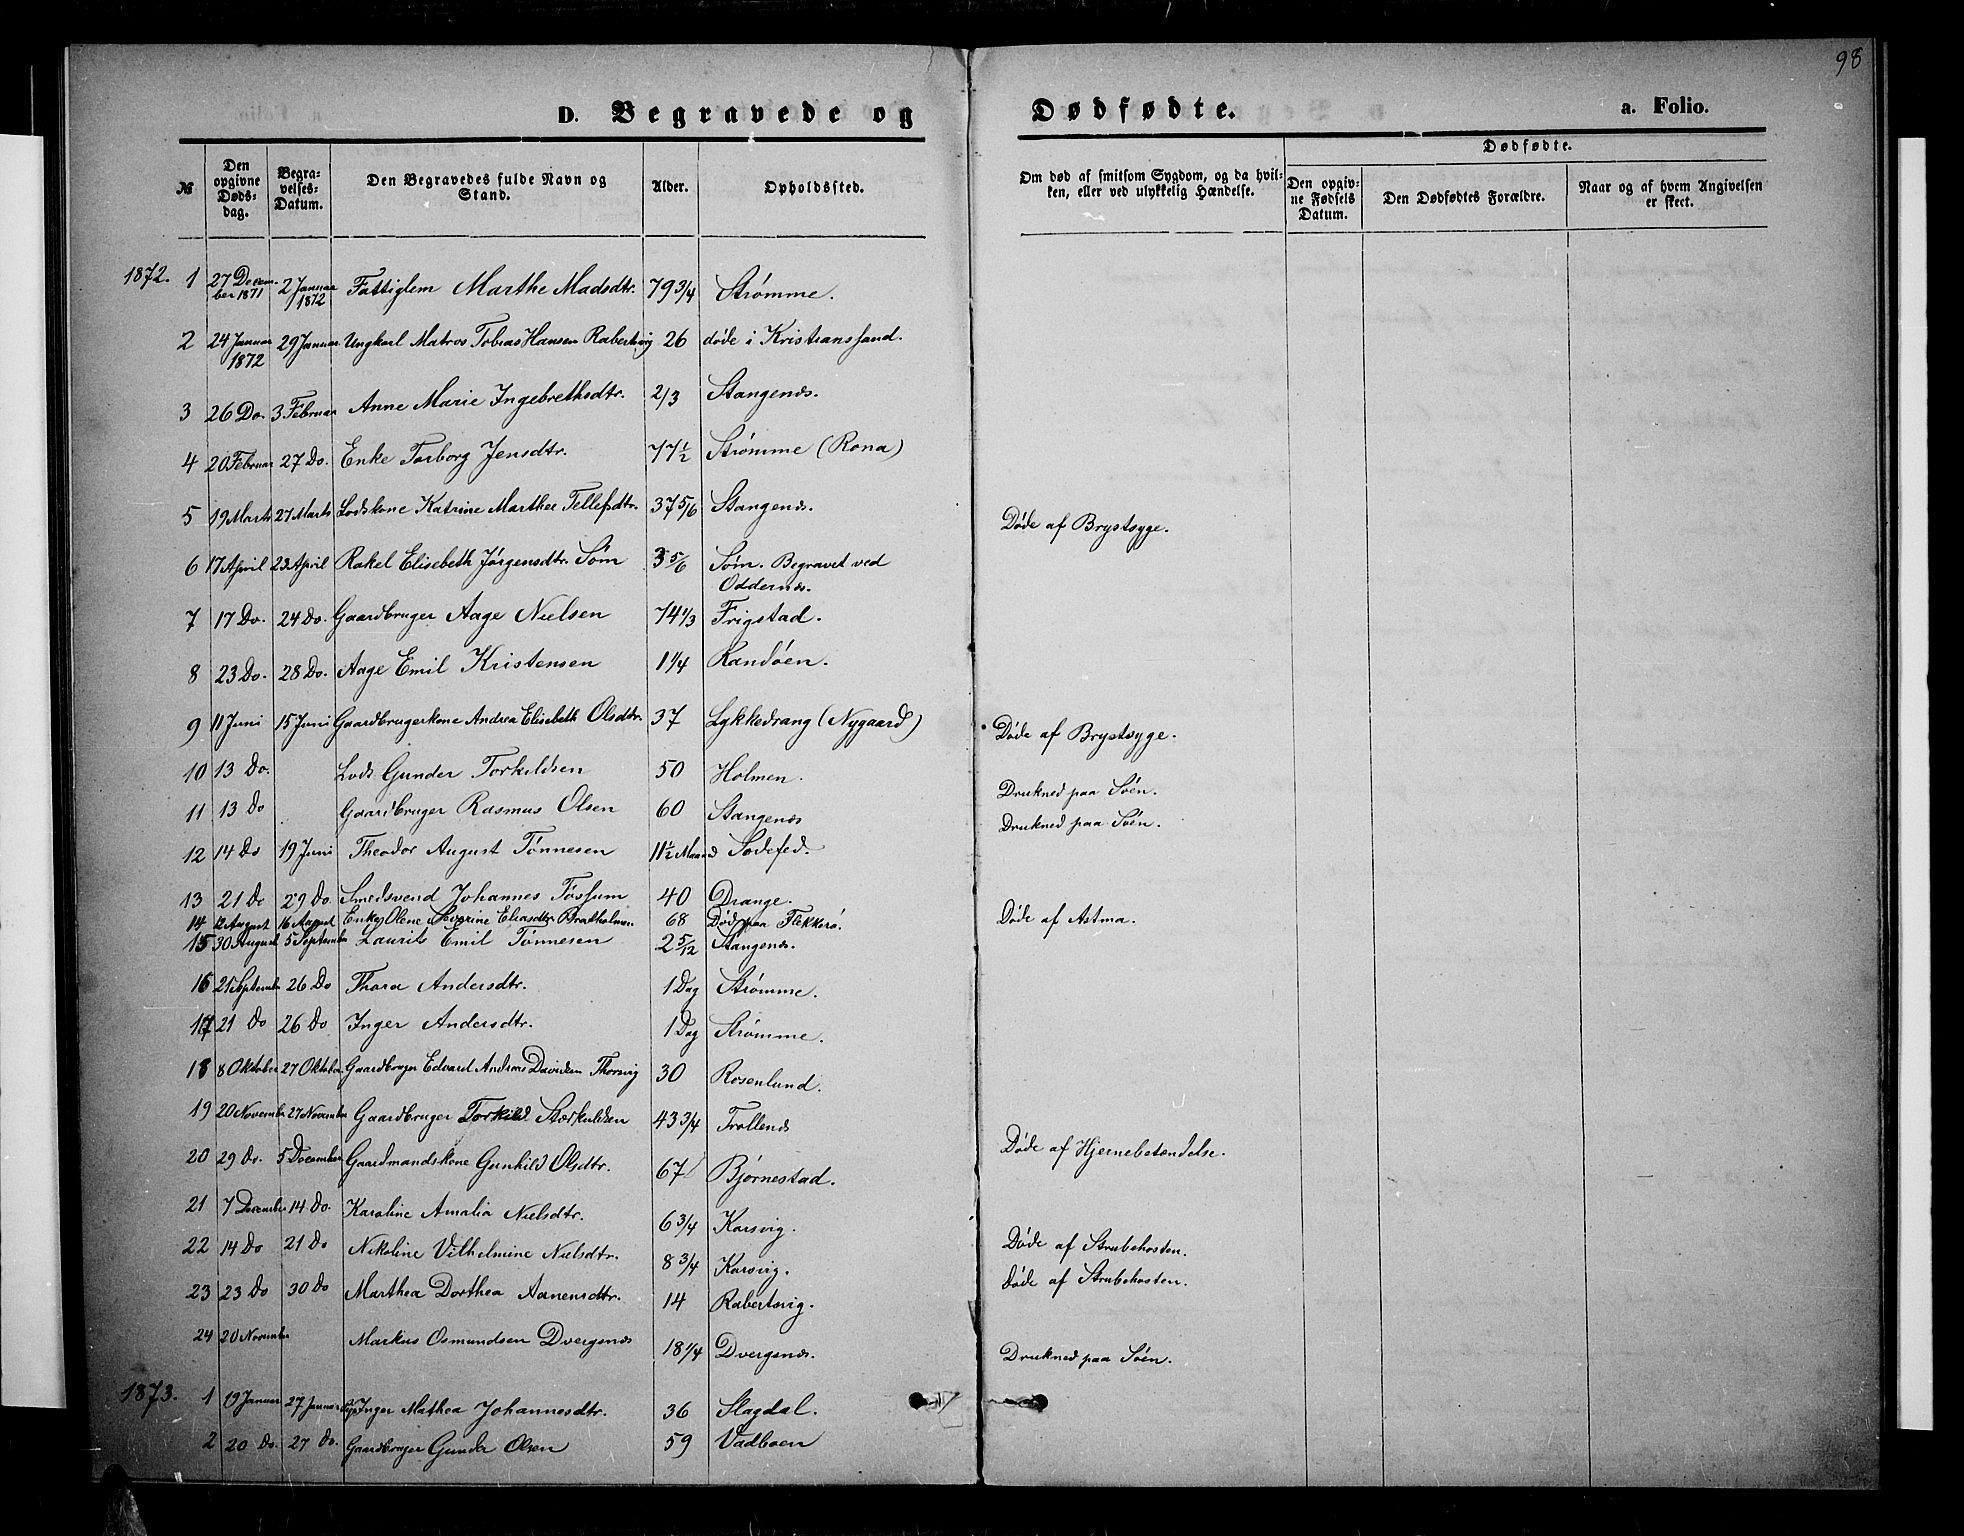 98
D. Begravede og Dødfødte. a. Folio.
№ Den opgivne Døds-dag. Begra-velses-Datum. Den Begravedes fulde Navn og Stand. Alder. Opholdssted. Om død af smitsom Sygdom, og da hvil-ken, eller ved ulykkelig Hændelse. Dødfødte.
Den opgiv-ne Fødsels Datum. Den Dødfødtes Forældre. Naar og af hvem Angivelsen er skeet.
1872. 1 27 Decem-ber 1871 2 Januar 1872 Fattiglem Marthe Madsdtr. 79 3/4 Strømme.
2 24 Januar 1872 29 Januar Ungkarl Matros Tobias Hansen Rabertsvig 26 døde i Kristianssand.
3 26 Do. 3. Februar Anne Marie Ingebrethsdtr. 2/3 Stangenæs.
4 20 Februar 27 Do. Enke Torborg Jensdtr. 77 1/2 Strømme (Rona)
5 19 Marts 27 Marts Lodskone Katrine Marthea Tellefsdtr. 37 5/6 Stangenæs. Døde af Brystsyge.
6 17 April 23 April Rakel Elisebeth Jørgensdtr. Søm 3 5/6 Søm. Begravet ved Oddernæs.
7 17 Do. 24 Do. Gaardbruger Aage Nielsen 74 1/3 Frigstad.
8 23 Do. 28 Do. Aage Emil Kristensen 1 1/4 Randøen.
9 11 Juni 15 Juni Gaardbrugerkone Andrea Elisebeth Olsdtr. 37 Lykkedrang (Nygaard) Døde af Brystsyge.
10 13 Do. Lods Gunder Torkildsen 50 Holmen. Druknede paa Søen.
11 13 Do Gaardbruger Rasmus Olsen 60 Stangenæs Druknede paa Søen.
12 14 Do 19 Juni Theodor August Tønnesen 11 1/2 Maaned Sodefed.
13 21 Do 29 Do. Smedsvend Johannes Fossum 40 Drange. Døde af Astma.
14 12 August 16 August Enke Olene Severine Eliasdtr. Bradholmen 68 Død paa Flekkerø.
15 30 August 5 September Laurits Emil Tønnesen 2 5/12 Stangenæs.
16 21 September 26 Do Thora Andersdtr. 1 Dag Strømme.
17 21 Do 26 Do Inger Andersdtr. 1 Dag Strømme.
18 8 Oktober 27 Oktober Gaardbruger Edvard Andreas Davidsen Thorsvig 30 Rosenlund.
19 20 November 27 November Gaardbruger Torkild Størkuldsen 43 3/4 Trollenæs
20 29 Do. 5 December Gaardmandskone Gunhild Olsdtr. 67 Bjørnestad. Døde af Hjernebetændelse.
21 7 December 14 Do. Karoline Amalia Nielsdtr. 6 3/4 Korsvig. Døde af Strubehosten.
22 14 Do 21 Do Nikoline Vilhelmine Nielsdtr. 8 3/4 Korsvig. Døde af Strubehosten.
23 23 Do 30 Do Marthea Dorthea Aanensdtr. 14 Rabertsvig.
24 20 November Markus Osmundsen Dvergsnæs 18 1/4 Dvergsnæs. Druknede paa Søen.
1873. 1 19 Januar 27 Januar Inger Mathea Johannesdtr. 36 Slagdal.
2 20 Do. 27 Do. Gaardbruger Gunder Olsen 59 Vadboen